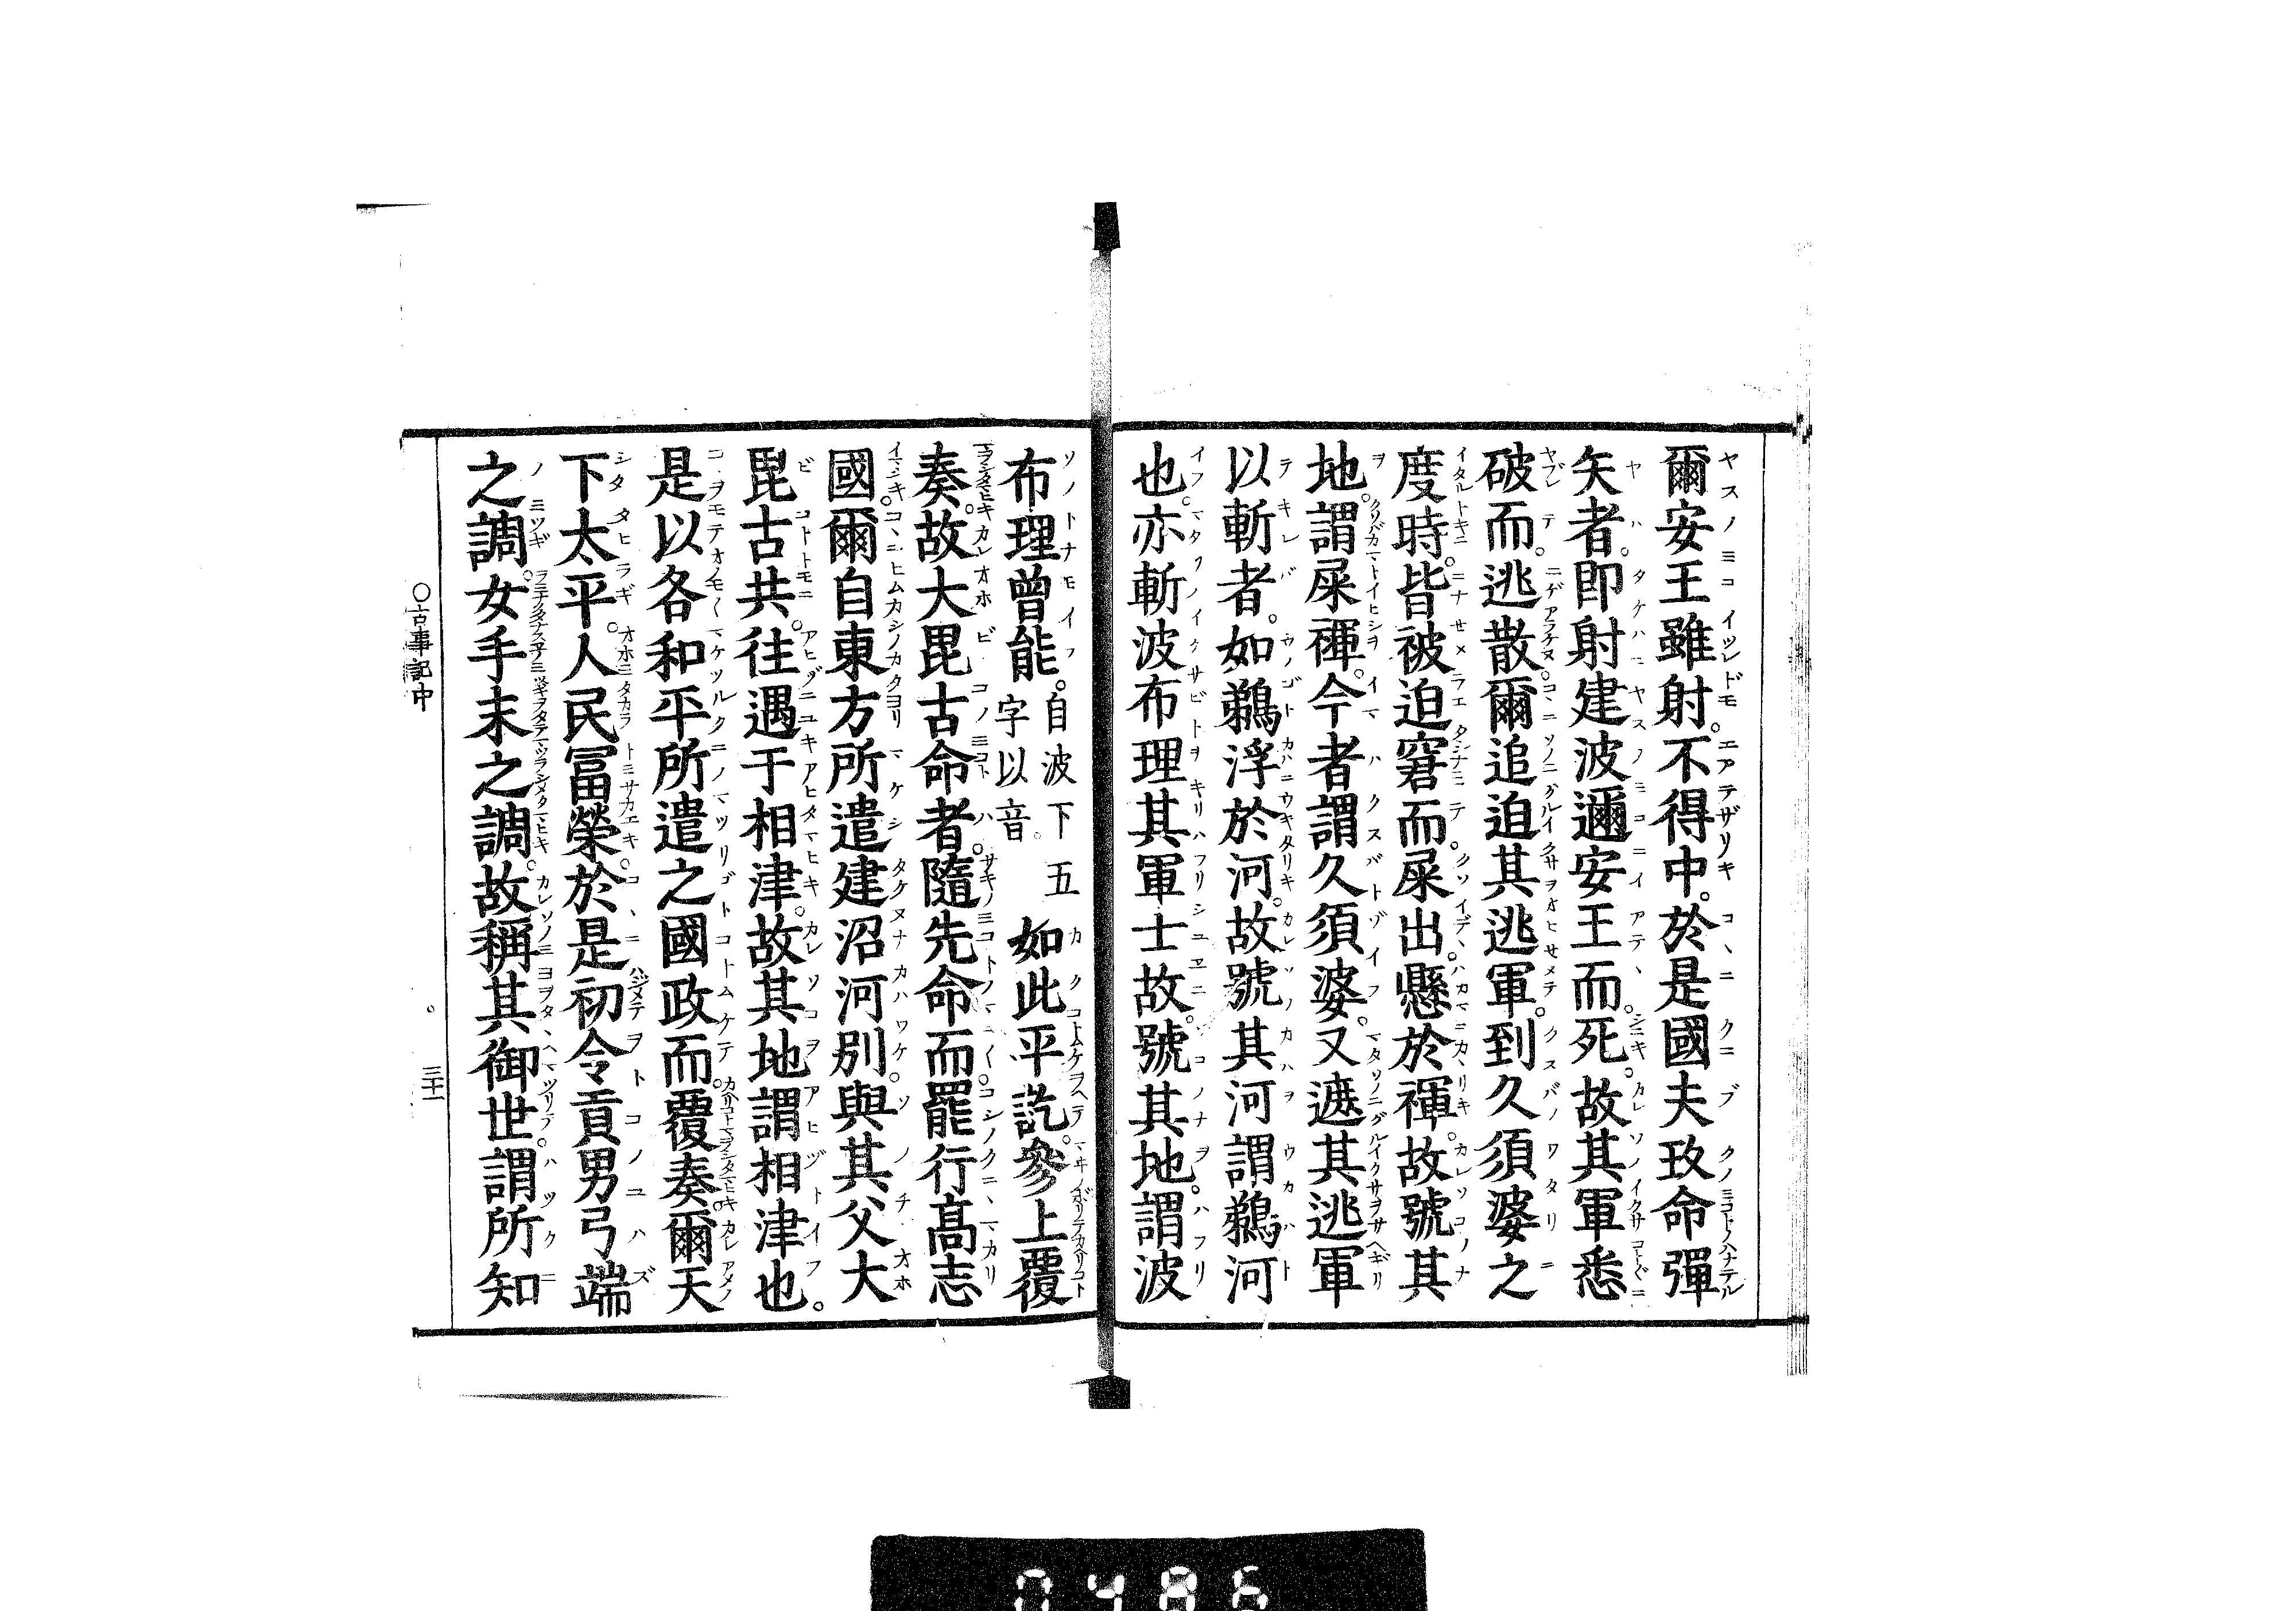 爾安王雖射。不得中。於是國夫玫命彈
矢者。即射建波邇安王而。死。故其軍悉
破而。逃散。爾追迫其逃軍。到久須婆之
度時。皆被迫窘而。屎出。懸於褌。故號其
地。謂屎褌。今者謂久須婆。又遮其逃軍
以斬者。如鵜浮於河。故號其河謂鵜河
也。亦斬波布理其軍士故。號其地。謂波
布理曾能。自波下五字以音。如此平訖。參上覆
奏。故大毘古命者。隨先命而。罷行高志
國。爾自東方所遣建沼河別。與其父大
毘古共。往遇于相津。故其地謂相津也。
是以各和平所遣之國政而。覆奏。爾天
下太平。人民冨榮。於是初令貢男弓端
之調。女手末之調。故稱其御世。謂所知
○古事記中
三十一
0486